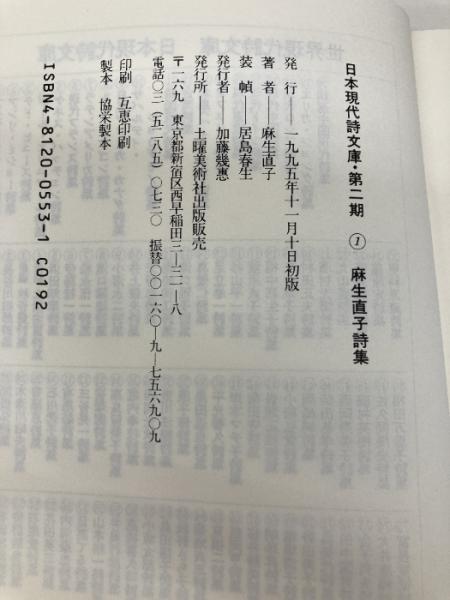 日本現代詩文庫・第二期 ① 麻生直子詩集
発行――一九九五年十一月十日初版
著者――麻生直子
装幀――居島春生
発行者――加藤幾惠
発行所――土曜美術社出版販売
〒一六九 東京都新宿区西早稲田三―三一―八
電話〇三(五二八五)〇七三〇 振替〇〇一六〇―九―七五六九〇九
印刷 互恵印刷
製本 協栄製本
ISBN4-8120-0553-1 C0192